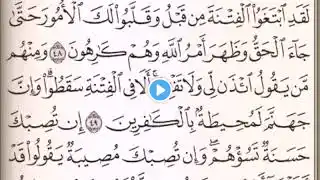 لَقَدِ ٱبْتَغَوُا۟ ٱلْفِتْنَةَ مِن قَبْلُ وَقَلَّبُوا۟ لَكَ ٱلْأُمُورَ حَتَّىٰ
جَآءَ ٱلْحَقُّ وَظَهَرَ أَمْرُ ٱللَّهِ وَهُمْ كَٰرِهُونَ ٤٨ وَمِنْهُم
مَّن يَقُولُ ٱئْذَن لِّى وَلَا فِى ٱلْفِتْنَةِ سَقَطُوا۟ وَإِنَّ
جَهَنَّمَ لَمُحِيطَةٌۢ بِٱلْكَٰفِرِينَ ٤٩ إِن تُصِبْكَ
حَسَنَةٌ تَسُؤْهُمْ وَإِن تُصِبْكَ مُصِيبَةٌ يَقُولُوا۟ قَدْ